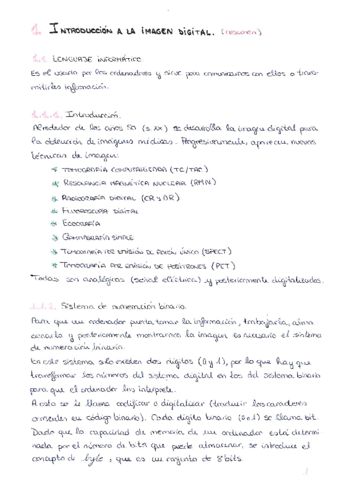 1. INTRODUCCIÓN A LA IMAGEN DIGITAL. (resumen)
1.1 LENGUAJE INFORMÁTICO
Es el usado por los ordenadores y sirve para comunicarnos con ellos o trans-
mitirles información.
1.1.1. Introducción.
Alrededor de los años 50 (s. XX) se desarrolla la imagen digital para
la obtención de imágenes médicas. Progresivamente, aparecen nuevas
técnicas de imagen:
* TOMOGRAFÍA COMPUTARIZADA (TC/TAC)
* RESONANCIA MAGNÉTICA NUCLEAR (RMN)
* RADIOGRAFÍA DIGITAL (CR y DR)
* FLUOROSCOPIA DIGITAL
* ECOGRAFÍA
* GAMMAGRAFÍA SIMPLE
* TOMOGRAFÍA POR EMISIÓN DE FOTÓN ÚNICO (SPECT)
* TOMOGRAFÍA POR EMISIÓN DE POSITRONES (PET)
Todas son analógicas (señal eléctrica) y posteriormente digitalizadas.
1.1.2. Sistema de numeración binario.
Para que un ordenador pueda tomar la información, trabajarla, alma-
cenarla y posteriormente mostrarnos la imagen es necesario el sistema
de numeración binario.
En este sistema sólo existen dos dígitos (0 y 1), por lo que hay que
transformar los números del sistema digital en los del sistema binario
para que el ordenador los interprete.
A esto se le llama codificar o digitalizar (traducir los caracteres
en código binario). Cada dígito binario (0 o 1) se llama bit.
Dado que la capacidad de memoria de un ordenador está determi-
nada por el número de bits que puede almacenar, se introduce el
concepto de byte, que es un conjunto de 8 bits.